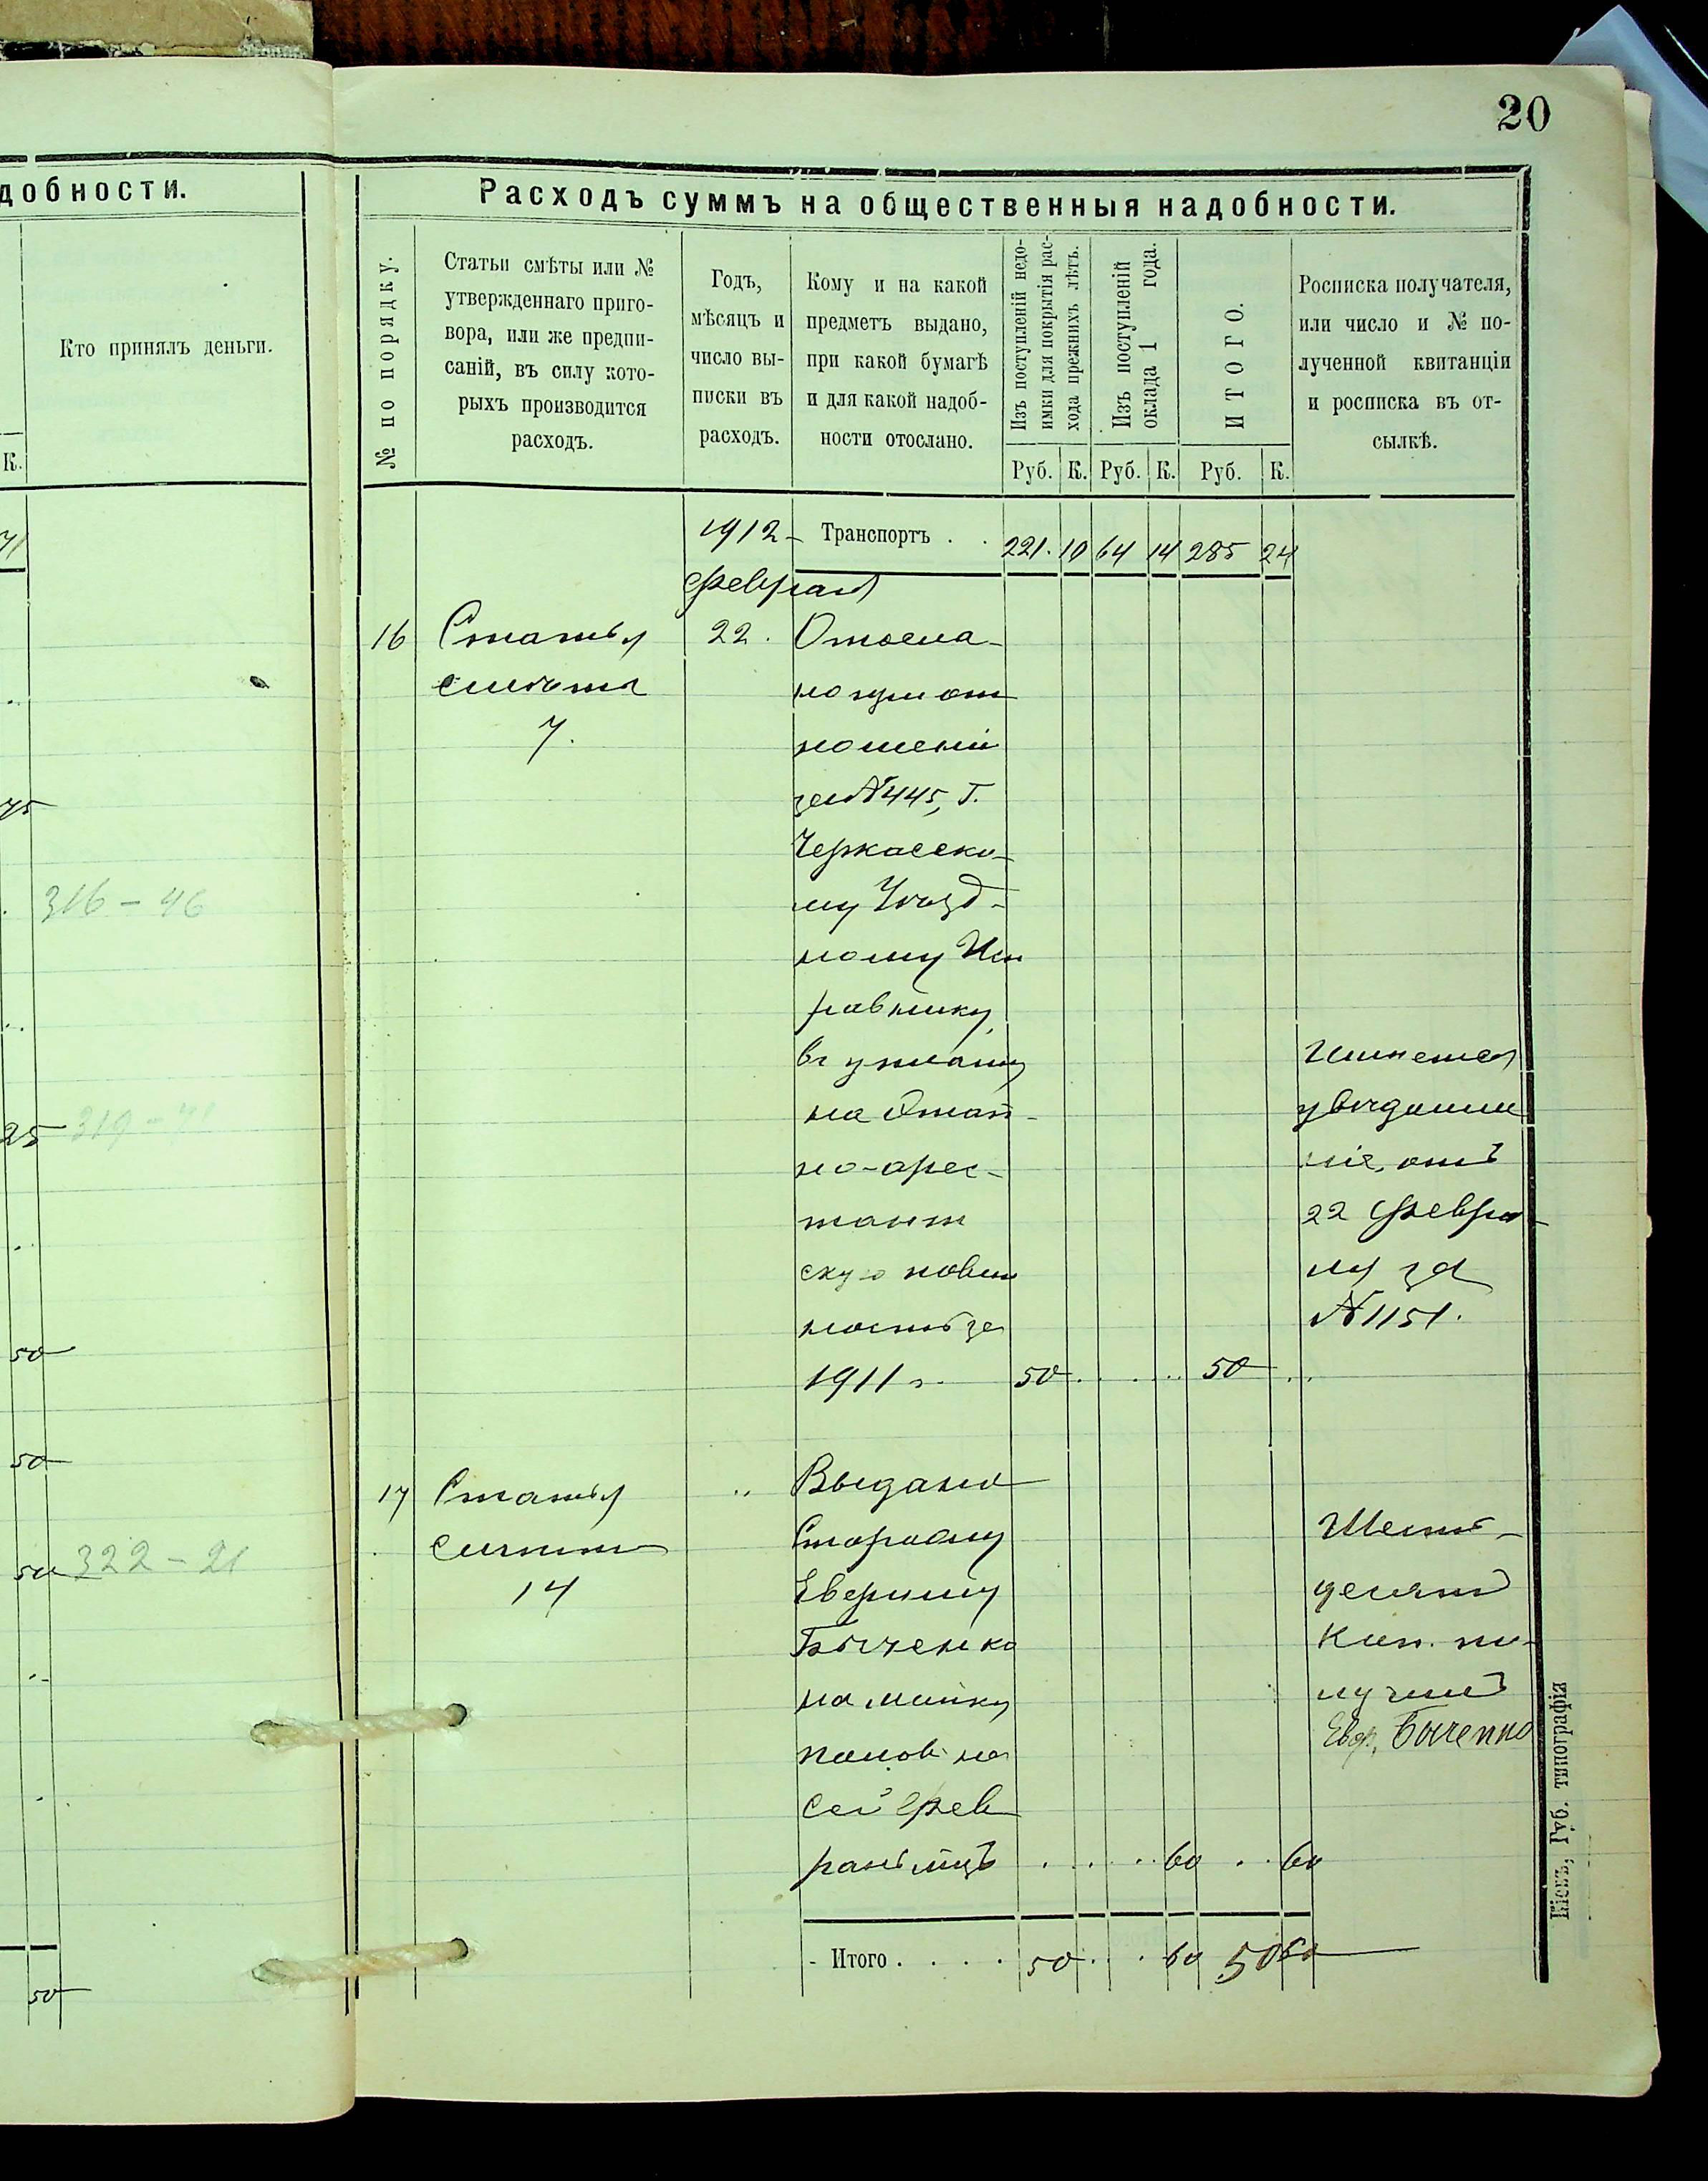 20
добности.
Кто принялъ деньги.
К.
71
75
316 – 46
25 319 – 41
50
50
50 322 – 21
50
Расходъ суммъ на общественныя надобности.
№ по порядку.
Статьи смѣты или №
утвержденнаго приго-
вора, или же предпи-
саній, въ силу кото-
рыхъ производится
расходъ.
Годъ,
мѣсяцъ и
число вы-
писки въ
расходъ.
Кому и на какой
предметъ выдано,
при какой бумагѣ
и для какой надоб-
ности отослано.
Изъ поступленій недо-
имки для покрытія рас-
хода прежнихъ лѣтъ.
Изъ поступленій
оклада 1 года.
ИТОГО.
Росписка получателя,
или число и № по-
лученной квитанціи
и росписка въ от-
сылкѣ.
Руб. К. Руб. К. Руб. К.
1912 – Транспортъ . . 221. 10 64 14 285 24
Февраля
16 Статья 22. Отосла-
смѣты но при от
7. ношеніи
за №445, Г.
Черкасско-
му Уѣзд-
ному Исп
равнику,
въ уплату
на Этап-
но-арес-
тант
скую повин
ность за
1911 г. 50 . . . . 50 . .
Имѣется
увѣдомле
ніе, отъ
22 Февра-
ля за
№1151.
17 Статья „ Выдано
смѣты Сторожу
14
Быченко
на мытку
половъ на
сей Фев
раль мцъ . . . . 60 . . 60
Шесть-
десятъ
Коп. по-
лучилъ
Евф. Быченко
Итого . . . . 50 . . . 60 50 60
Кіевъ, Губ. типографія